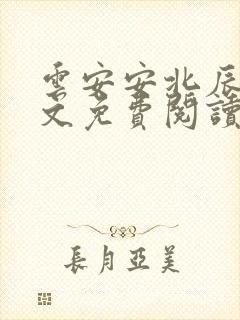 雲安安北辰
文免費閱讀
長月亞美